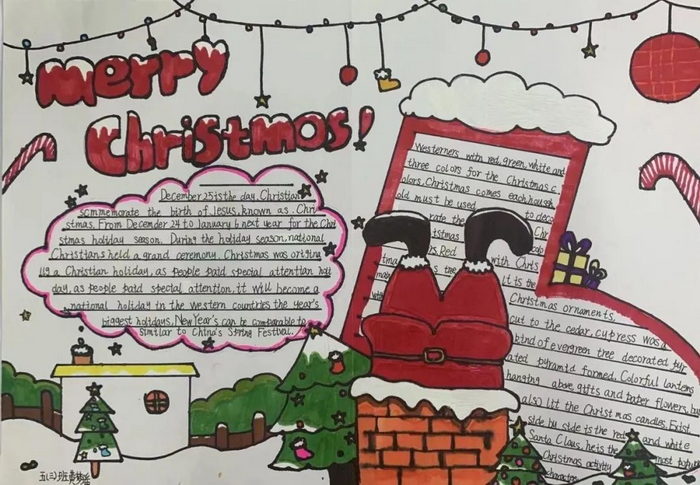 Merry
Christmas!
December 25 is the day. Christians
commemorate the birth of Jesus, known as. Chri
stmas. From December 24 to January 6 next year for the Chri
stmas holiday season. During the holiday season, national
Christians held a grand ceremony. Christmas was origing
ng a Christian holiday, as people paid special attention. hali
day, as people paid special attention, it will become a
national holiday in the western countries the year's
biggest holidays. New Year's can be comparable to
similar to China's Spring Festival.
Westerners with red, green, white and
three colors for the Christmas c
olors, Christmas comes each hough
old must be used
to deco
rate the
Chr
istmas
rs. Red
with Chris
tma
s the
it is the
main
Christmas ornaments,
cut to the cedar, cypress was a
kind of evergreen tree decorated pyr
ated pyramid formed. Colorful lantens
hanging above, gifts and paper flowers,
also lit the Christ mas candles. Exist
side by side is the red and white
Santa Claus, he is the most popul
Christmas activity
character
五(三)班